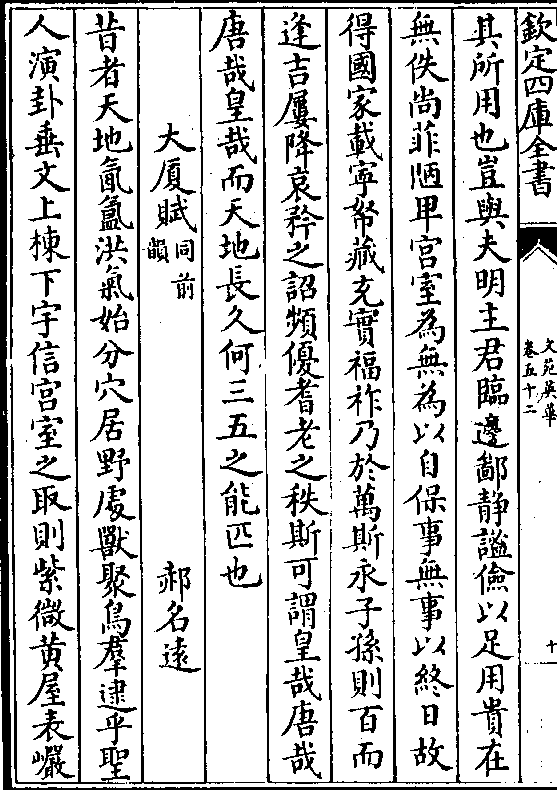 欽定四庫全書
文苑英華
卷五十二
十
其所用也豈與夫明主君臨邊鄙静謐儉以足用貴在
無佚尚菲陋卑宫室為無為以自保事無事以終日故
得國家載寧帑藏充實福祚乃於萬斯永子孫則百而
逢吉屢降哀矜之詔頻優耆老之秩斯可謂皇哉唐哉
唐哉皇哉而天地長久何三五之能匹也
大厦賦同前韻
郝名遠
昔者天地氤氲洪氣始分穴居野處獸聚鳥羣逮乎聖
人演卦垂文上棟下宇信宫室之取則紫微黄屋表巖